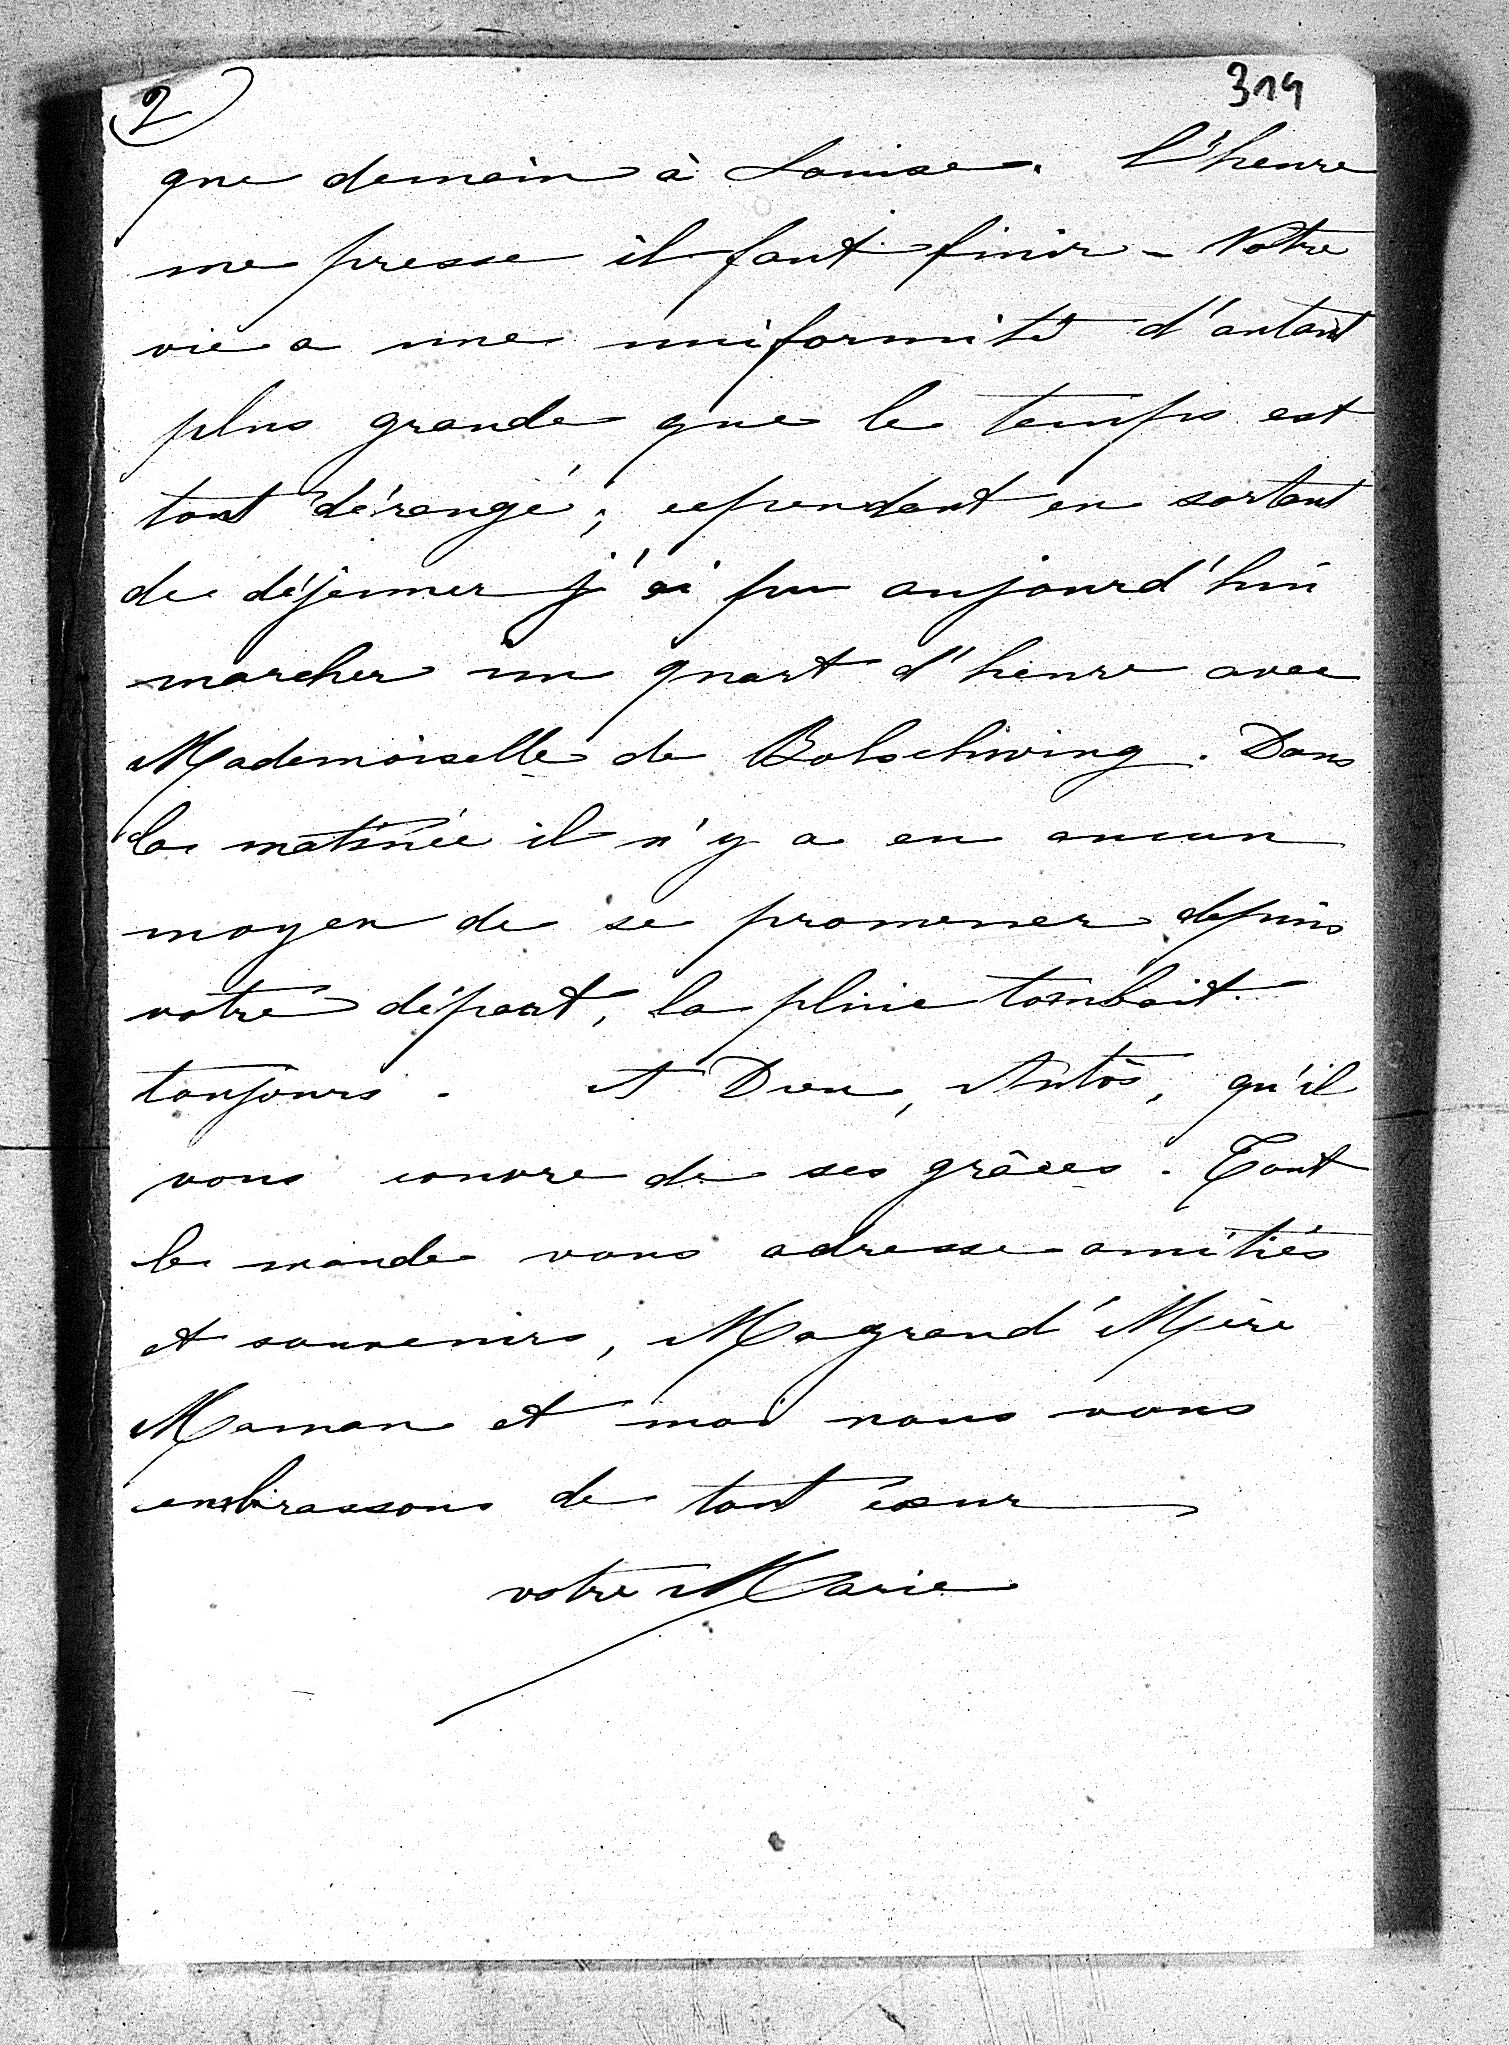 2
314
que demain à Louise. l'heure
me presse il faut finir - Notre
vie a une uniformité d'autant
plus grande que le temps est
tout dérangé; cependant en sortant
de déjeuner j'ai pu aujourd'hui
marcher un quart d'heure avec
Mademoiselle de Bolschwing. Dans
la matinée il n'y a eu aucun
moyen de se promener depuis
votre départ, la pluie tombait
toujours. A Dieu, Antôs, qu'il
vous couvre de ses grâces. Tout
le monde vous adresse amitiés
et souvenirs, Magrand'Mère
Maman et moi nous vous
embrassons de tout cœur
votre Marie